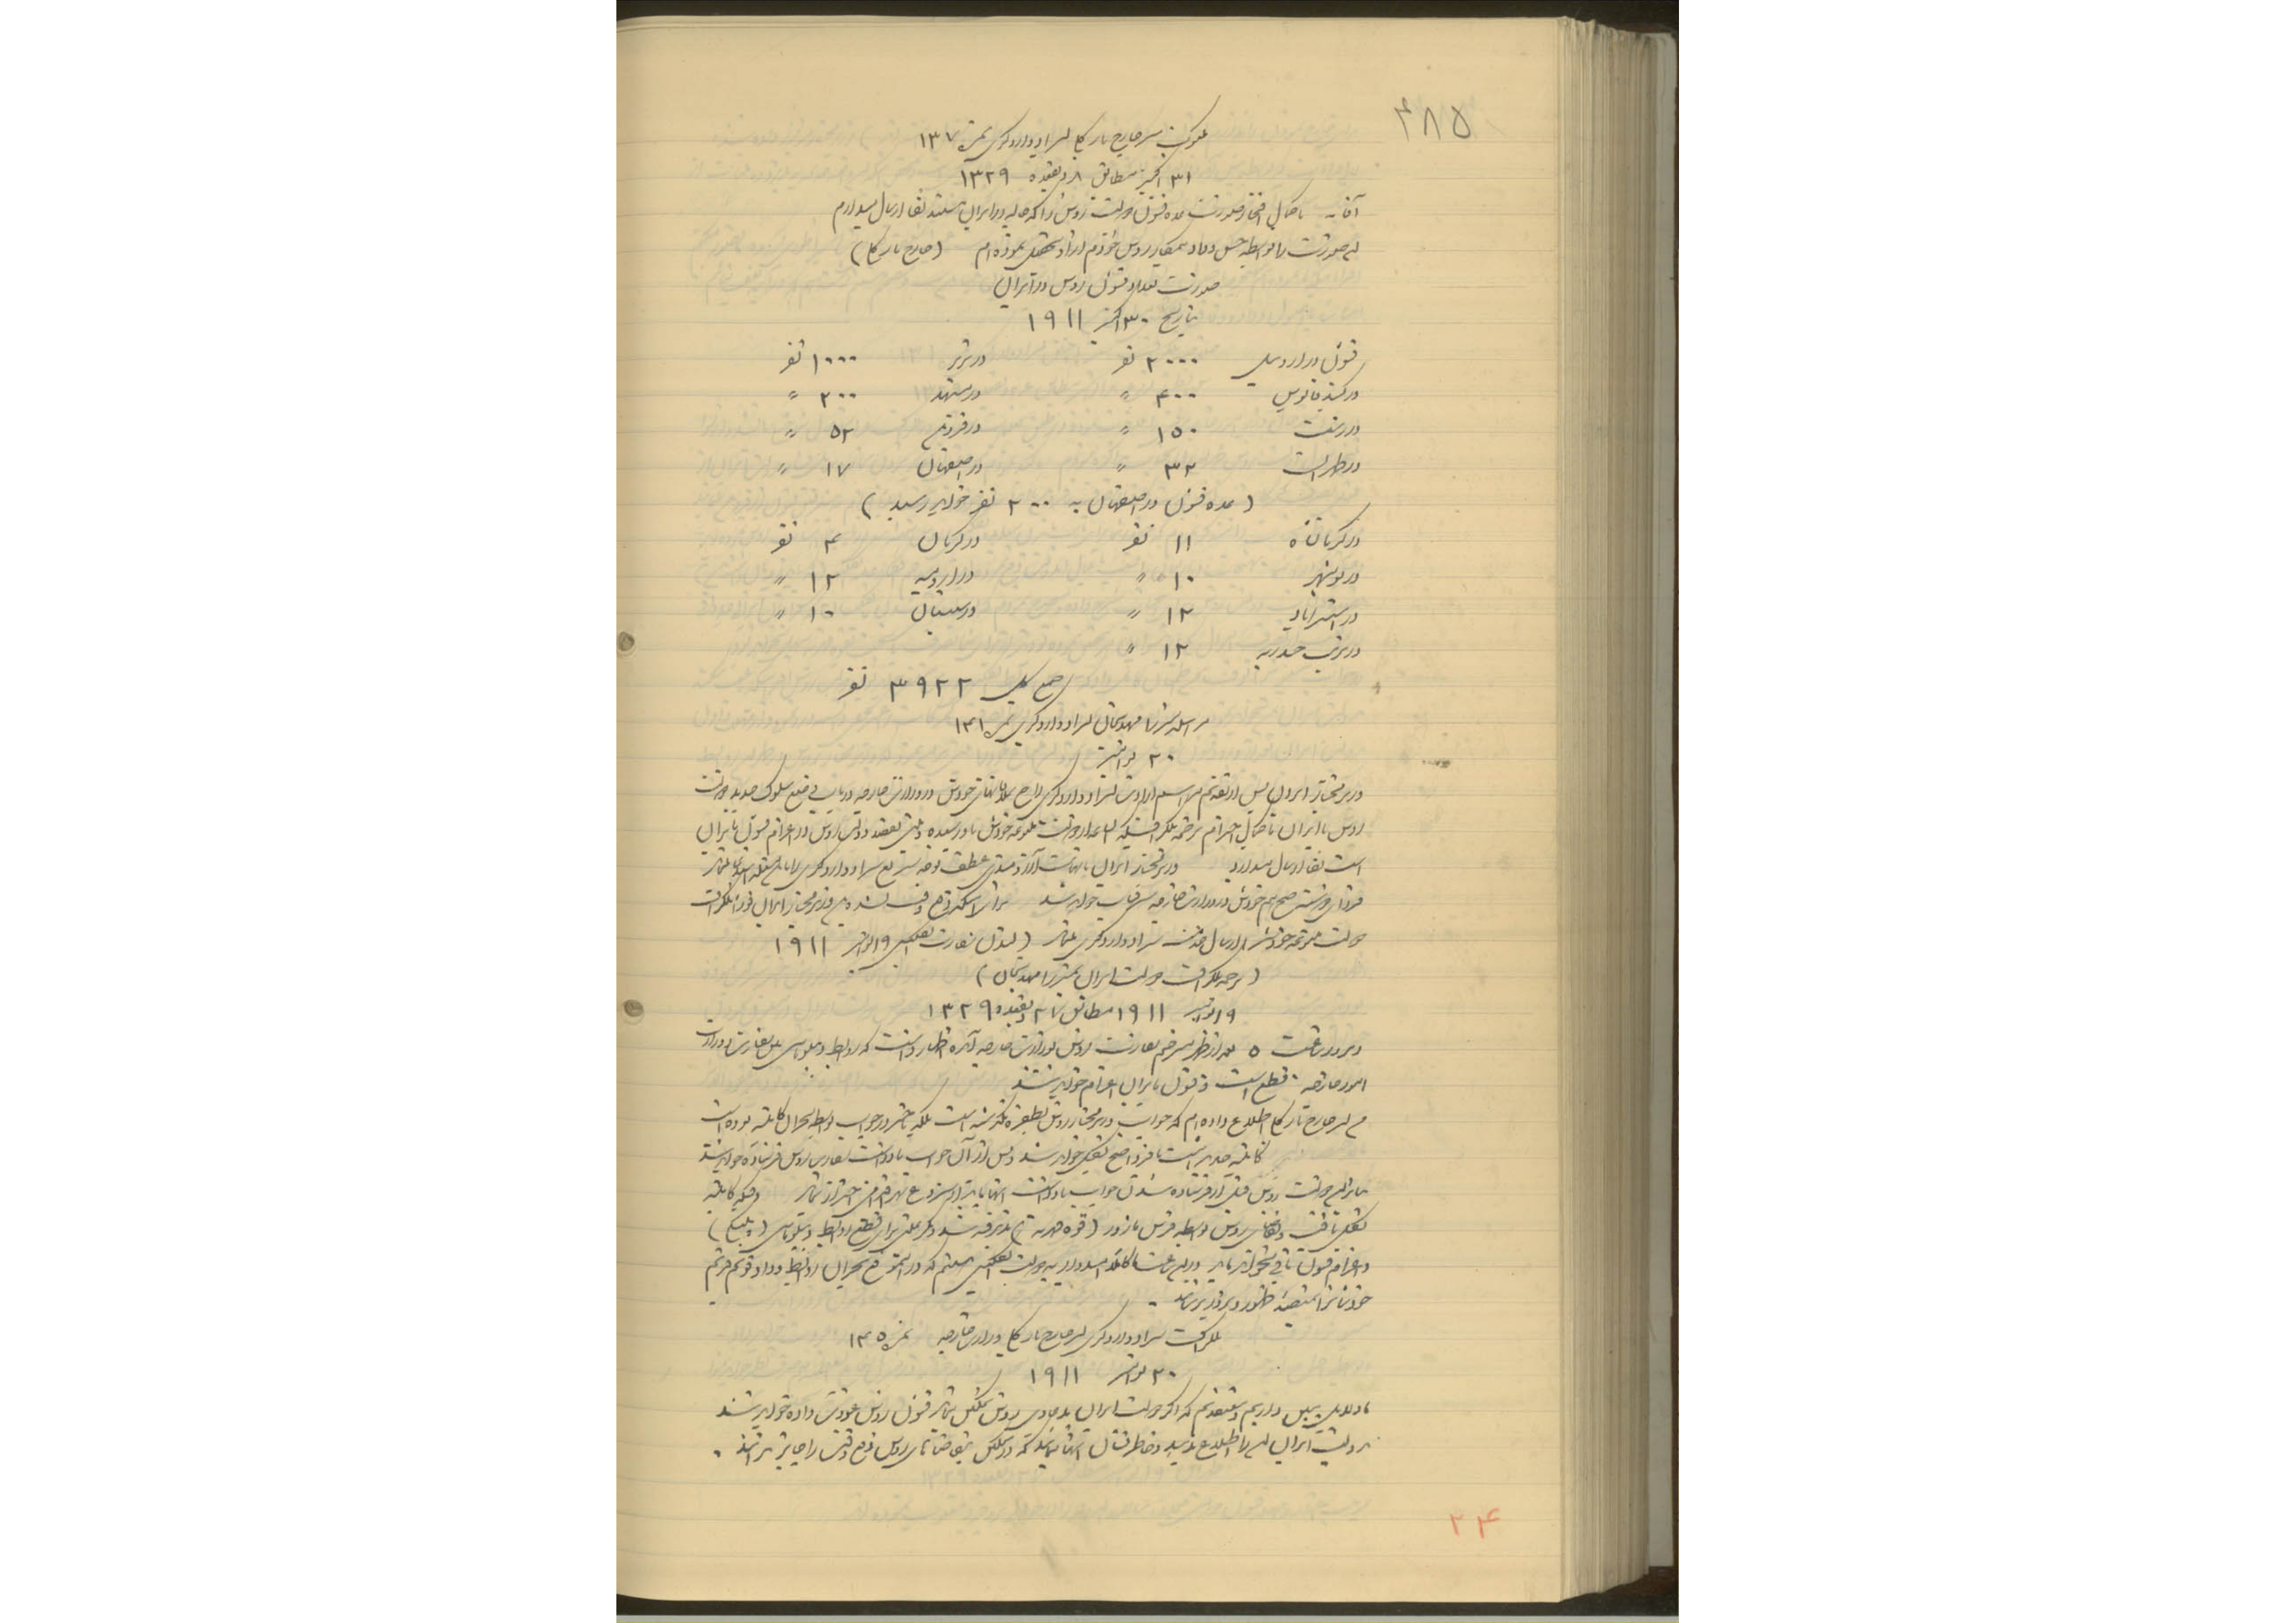 ۴۸۵
مکتوب سر جارج بارکلی بسر ادوارد گری نمره ۱۳۷
۳۱ اکتبر مطابق ۸ ذیقعده ۱۳۲۹
آقا - با کمال افتخار صورت عده قشون دولت روس را که حالیه در ایران هستند لفا ارسال میدارم
این صورت را بواسطه حسن وداد همکار روس خودم از او تحصیل نموده‌ام (جارج بارکلی)
صورت تعداد قشون روس در ایران
بتاریخ ۳۰ اکتبر ۱۹۱۱
قشون در اردبیل ۲۰۰۰ نفر در تبریز ۱۰۰۰ نفر
در گنبد قابوس ۴۰۰ " در مشهد ۲۰۰ "
در رشت ۱۵۰ " در قزوین ۵۲ "
در طهران ۳۲ " در اصفهان ۱۷ "
(عده قشون در اصفهان به ۲۰۰ نفر خواهد رسید)
در کرمانشاه ۱۱ نفر در کرمان ۴ نفر
در بوشهر ۱۰ " در ارومیه ۱۲ "
در استراباد ۱۲ " در سیستان ۱۰ "
در تربت حیدریه ۱۲ "
جمع کل ۳۹۲۲ نفر
مراسله میرزا مهدیخان بسر ادوارد گری نمره ۱۴۱
۲۰ نوامبر
وزیر مختار ایران پس از تقدیم مراسم ارادت بسر ادوارد گری راجع بملاقاتهای خودش در وزارت خارجه در باب وضع سلوک جدید دولت
روس با ایران با کمال احترام ترجمه تلگرافی که از دولت متبوعه خودش باو رسیده و بقصد دولت روس در اعزام قشون بایران
است لفا ارسال میدارد وزیر مختار ایران نهایت آرزومندی عطف توجه سریع سر ادوارد گری را باین مسئله
فردا صبح هم خودش در وزارت خارجه شرفیاب خواهد شد برای اینکه وقت نشده وزیر مختار ایران فورا تلگراف
دولت متبوعه خود را ارسال خدمت سر ادوارد گری (لندن سفارت ۱۹ نوامبر ۱۹۱۱)
(ترجمه تلگراف دولت ایران بمیرزا مهدیخان)
۱۹ نوامبر ۱۹۱۱ مطابق ۲۷ ذیقعده ۱۳۲۹
دیروز ساعت ۵ بعد از ظهر مترجم سفارت روس بوزارت خارجه آمده اظهار داشت که روابط دیپلوماسی بین سفارت و وزارت
امور خارجه قطع است و قشون بایران اعزام خواهند شد
من بسر جارج بارکلی اطلاع داده‌ام که جواب وزیر مختار روس بطفره نگذشته است بلکه تأخیر در جواب بواسطه بحران کابینه بوده است
کابینه جدید تا فردا صبح تشکیل خواهد شد و پس از آن جواب یادداشت بسفارت روس فرستاده خواهد شد
بنابراین دولت روس قبل از فرستاده شدن جواب یادداشت نباید از شروع بهر اقدامی احتراز نماید وقتیکه کابینه
تشکیل یافت و تقاضای روس بواسطه فرس ماژور (قوه قهریه) پذیرفته شد دیگر علتی برای قطع روابط دیپلوماسی (پلتیکی)
و اعزام قشون باقی نخواهد ماند در این ساعت کاملا امیدوار بدولت انگلیس هستم که در این موقع بحران روابط وداد و قدیم
خودشانرا بمنصه ظهور و بروز برساند .
تلگراف سر ادوارد گری بسر جارج بارکلی وزارت خارجه نمره ۱۴۵
۲۰ نوامبر ۱۹۱۱
ما دلایل داریم و معتقدیم که اگر دولت ایران بدعاوی روس تمکین نماید قشون روس عودت داده خواهد شد
بدولت ایران این را اطلاع بدهید و خاطر نشان آنها نمائید که در تمکین بتقاضاهای روس فوت وقت را جایز نشمرند .
۲۴